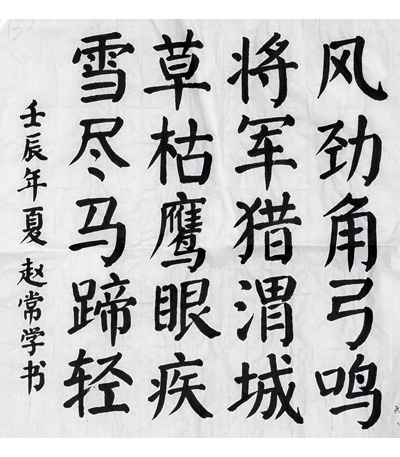 风劲角弓鸣
将军猎渭城
草枯鹰眼疾
雪尽马蹄轻
壬辰年夏 赵常学书